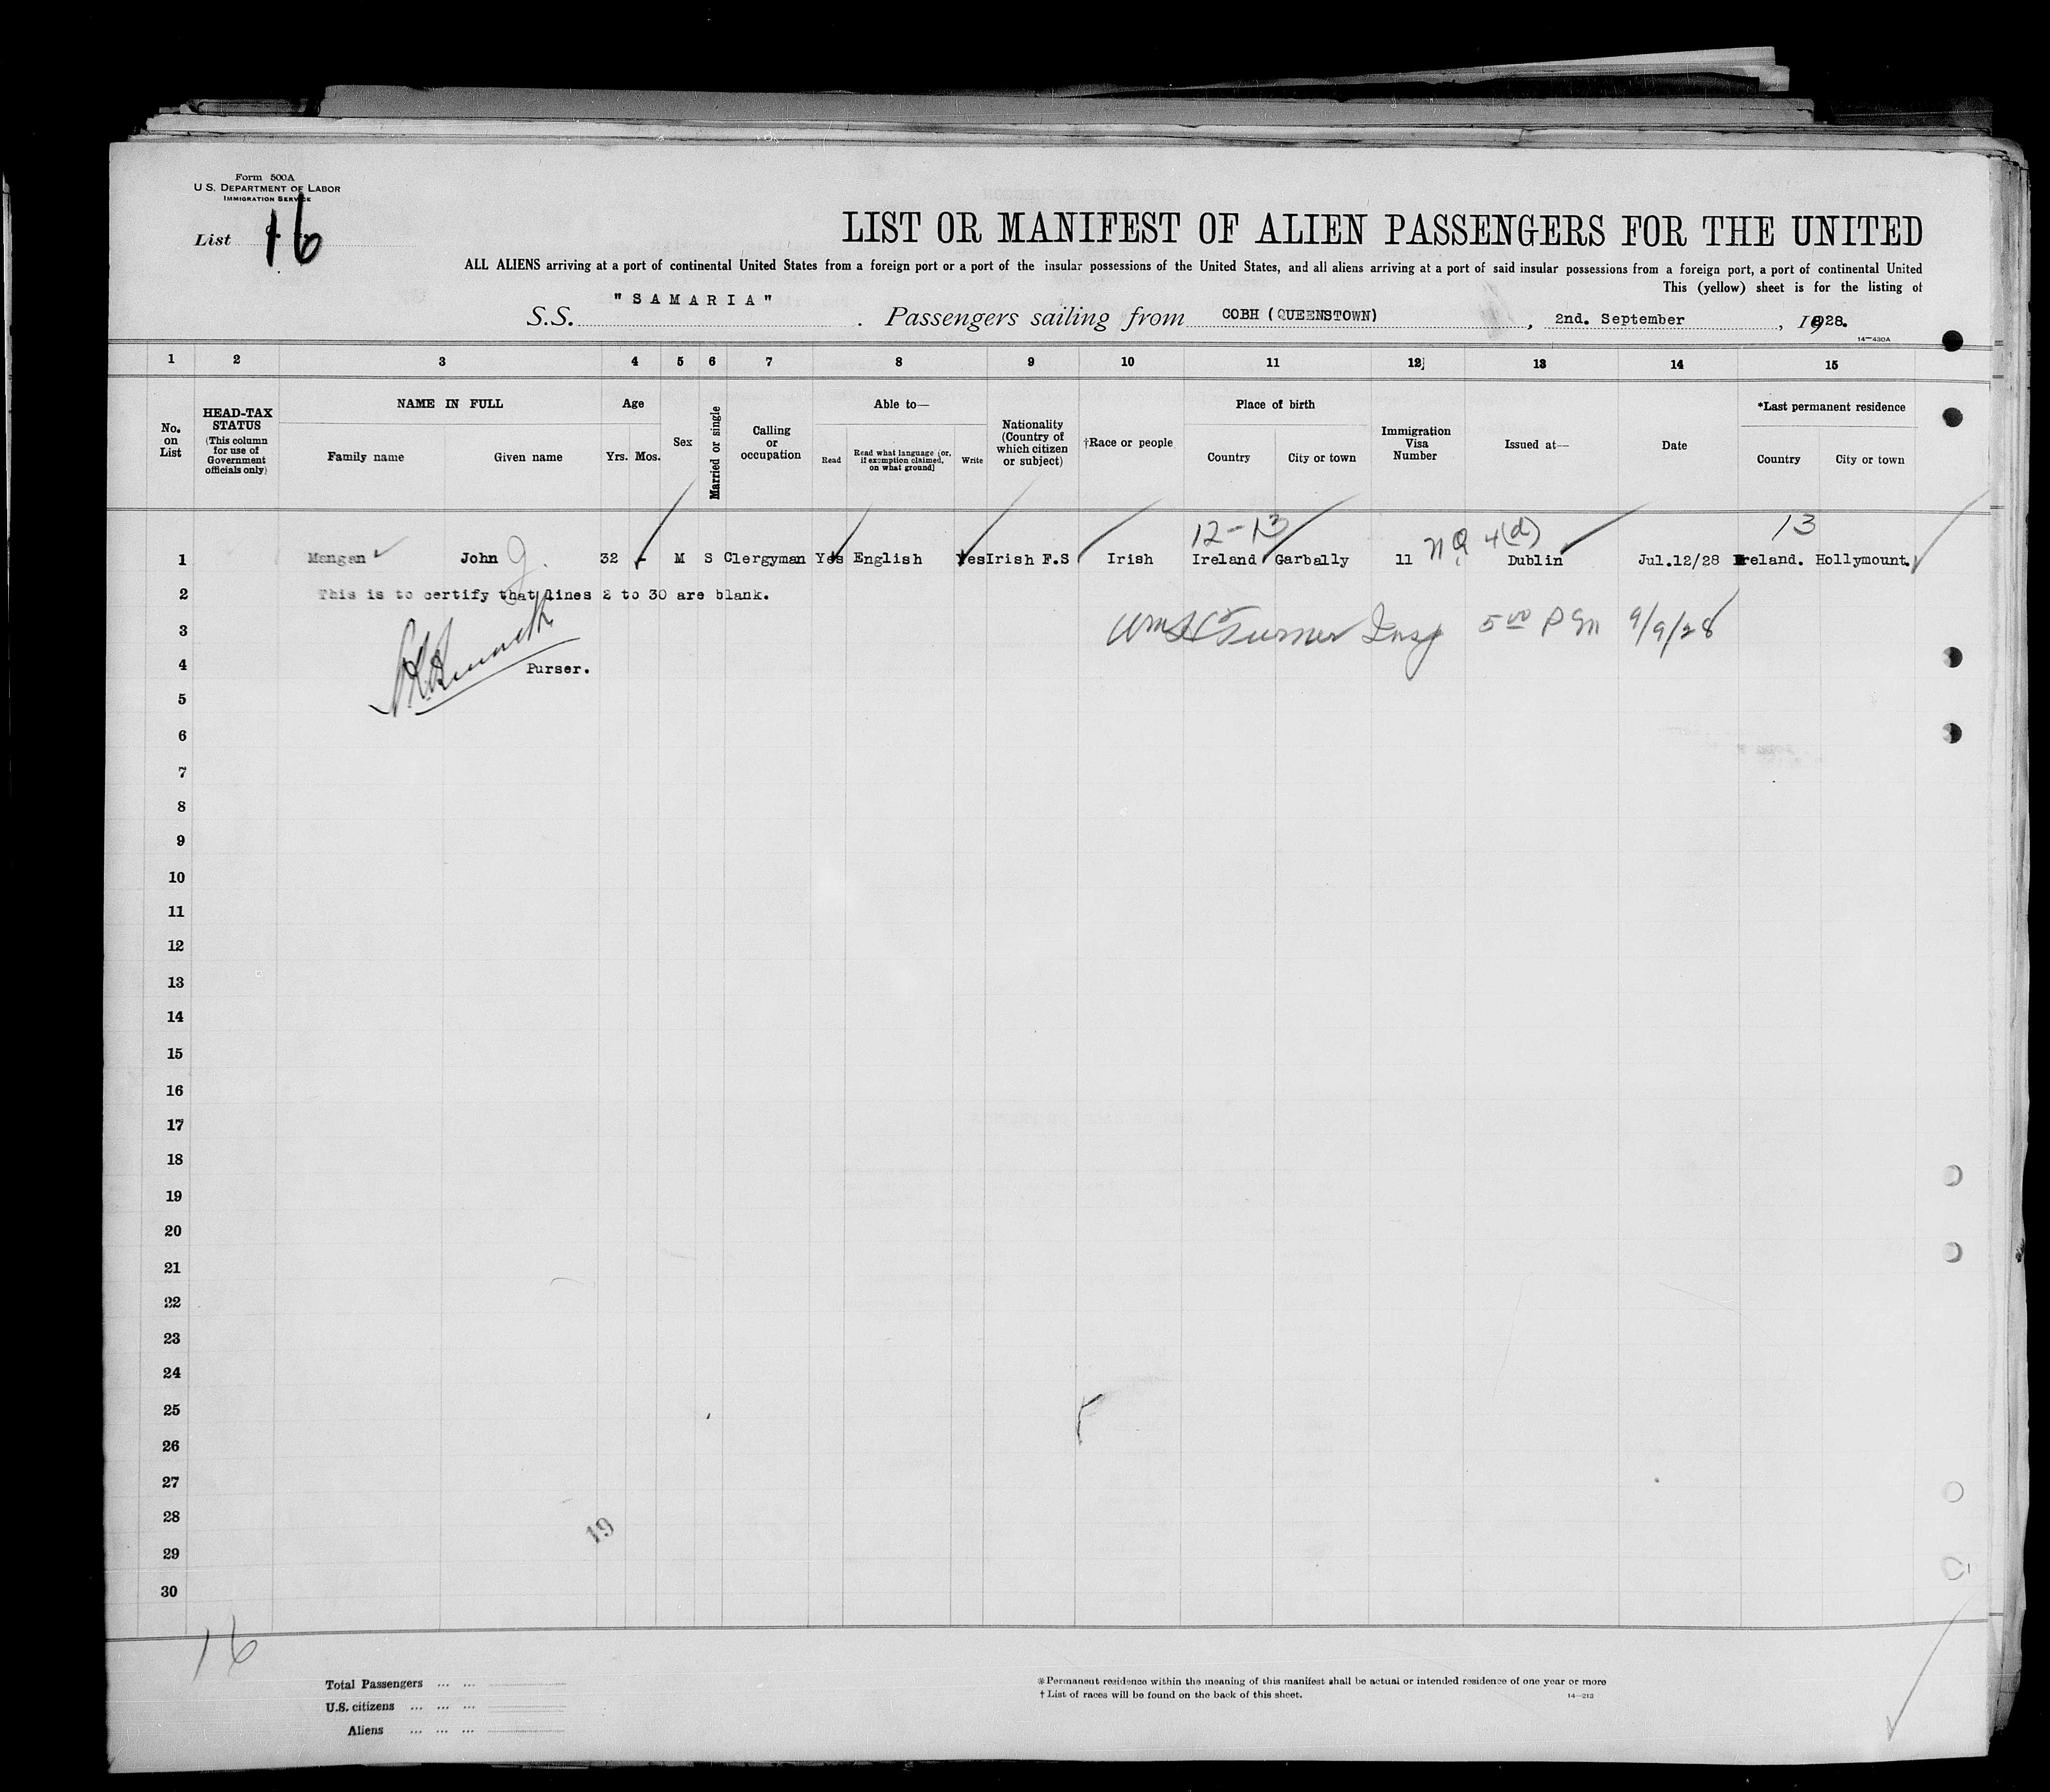 Form 500A
U.S. DEPARTMENT OF LABOR
IMMIGRATION SERVICE
List 16
LIST OR MANIFEST OF ALIEN PASSENGERS FOR THE UNITED
ALL ALIENS arriving at a port of continental United States from a foreign port or a port of the insular possessions of the United States, and all aliens arriving at a port of said insular possessions from a foreign port, a port of continental United
This (yellow) sheet is for the listing of
S.S. "SAMARIA". Passengers sailing from COBH (QUEENSTOWN), 2nd. September, 1928.
14—430A
1 2 3 4 5 6 7 8 9 10 11 12 13 14 15
No. on List
HEAD-TAX STATUS (This column for use of Government officials only)
NAME IN FULL
Family name Given name
Age
Yrs. Mos.
Sex
Married or single
Calling or occupation
Able to—
Read
Read what language [or, if exemption claimed, on what ground]
Write
Nationality (Country of which citizen or subject)
†Race or people
Place of birth
Country City or town
Immigration Visa Number
Issued at—
Date
*Last permanent residence
Country City or town
12-13 NQ 4(d) 13
1 Mangan John J. 32 - M S Clergyman Yes English Yes Irish F.S Irish Ireland Garbally 11 Dublin Jul.12/28 Ireland. Hollymount.
2 This is to certify that lines 2 to 30 are blank.
3 Wm H Turner Insp 5 00 P M 9/9/28
4 Purser.
5
6
7
8
9
10
11
12
13
14
15
16
17
18
19
20
21
22
23
24
25
26
27
28
19
29
30
16
Total Passengers ... ...
U.S. citizens ... ... ...
Aliens ... ... ...
*Permanent residence within the meaning of this manifest shall be actual or intended residence of one year or more
†List of races will be found on the back of this sheet.
14—213